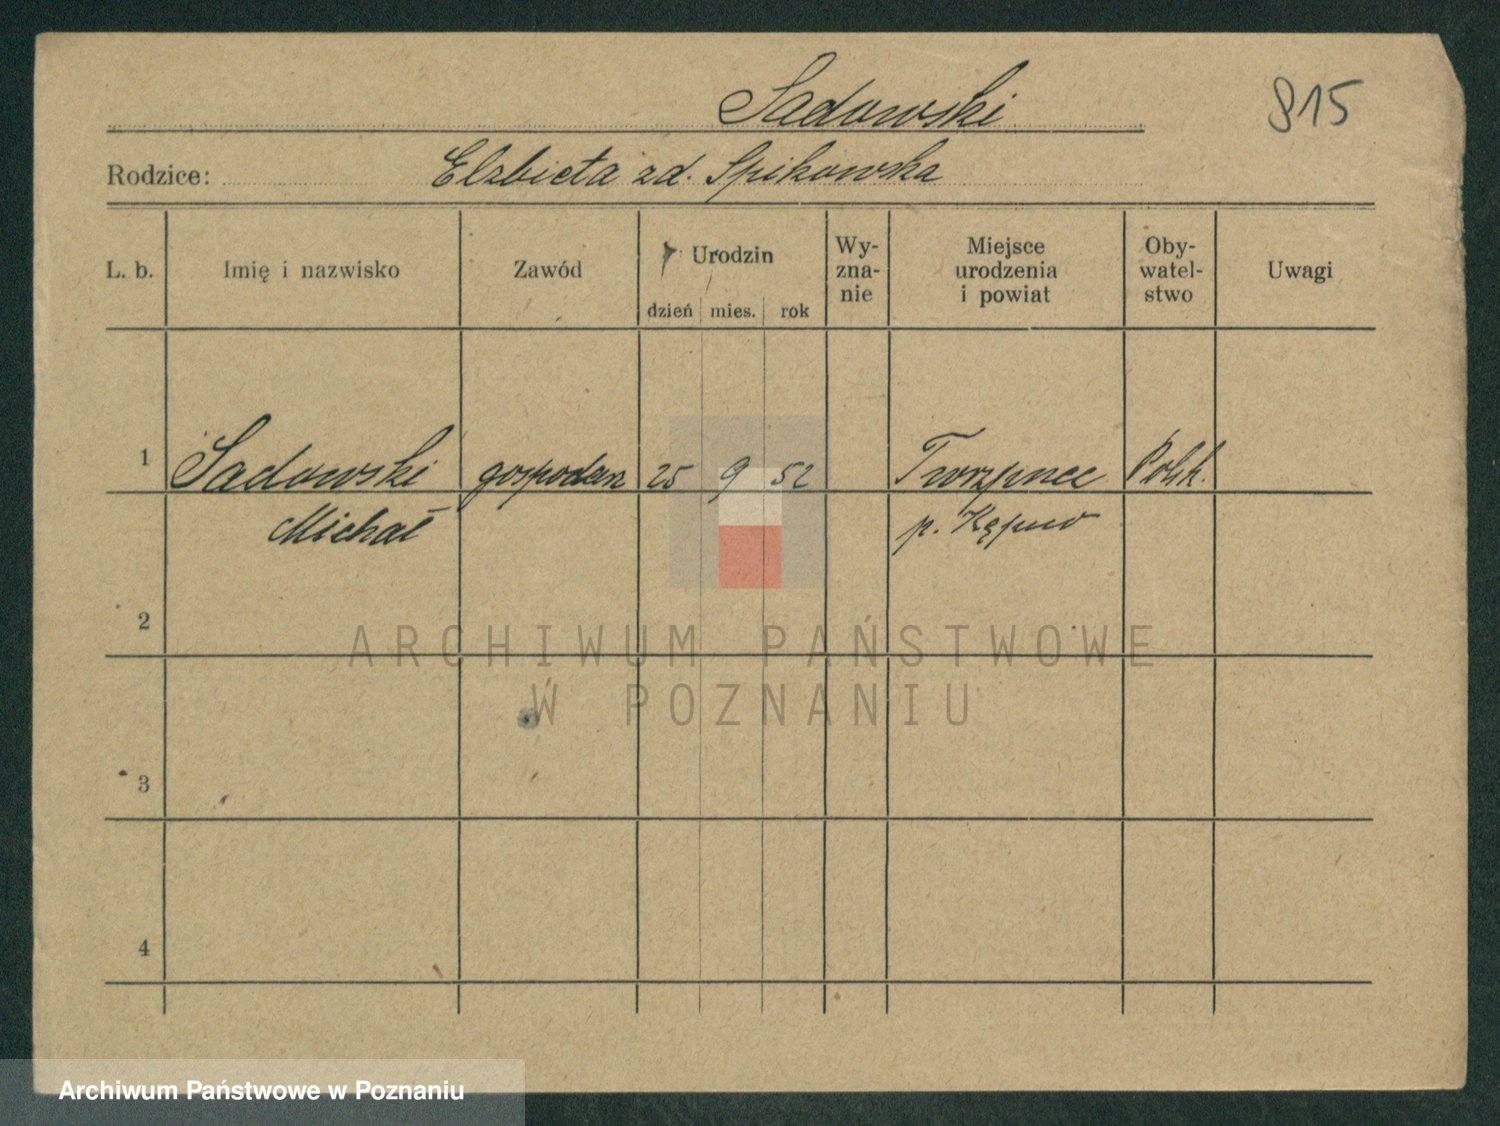 Sadowski
815
Rodzice: Elzbieta zd. Spikowska
L. b.
Imię i nazwisko
Zawód
Urodzin
dzień mies. rok
Wy-
zna-
nie
Miejsce
urodzenia
i powiat
Oby-
watel-
stwo
Uwagi
1 Sadowski gospodarz 25 9 52
Michał
p. Kępno
2
3
4
ARCHIWUM PAŃSTWOWE
W POZNANIU
Archiwum Państwowe w Poznaniu